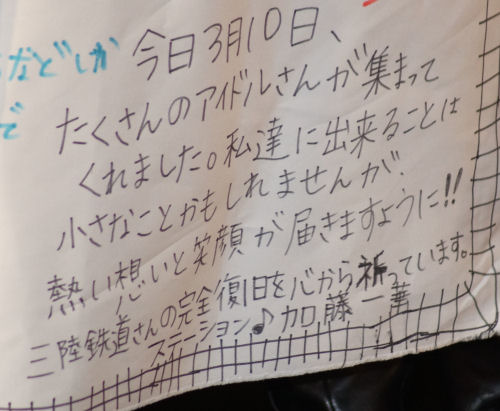 などしか
で
今日3月10日、
たくさんのアイドルさんが集まって
くれました。私達に出来ることは
小さなことかもしれませんが、
熱い想いと笑顔が届きますように!!
三陸鉄道さんの完全復旧を心から祈っています。
ステーション♪加藤一華